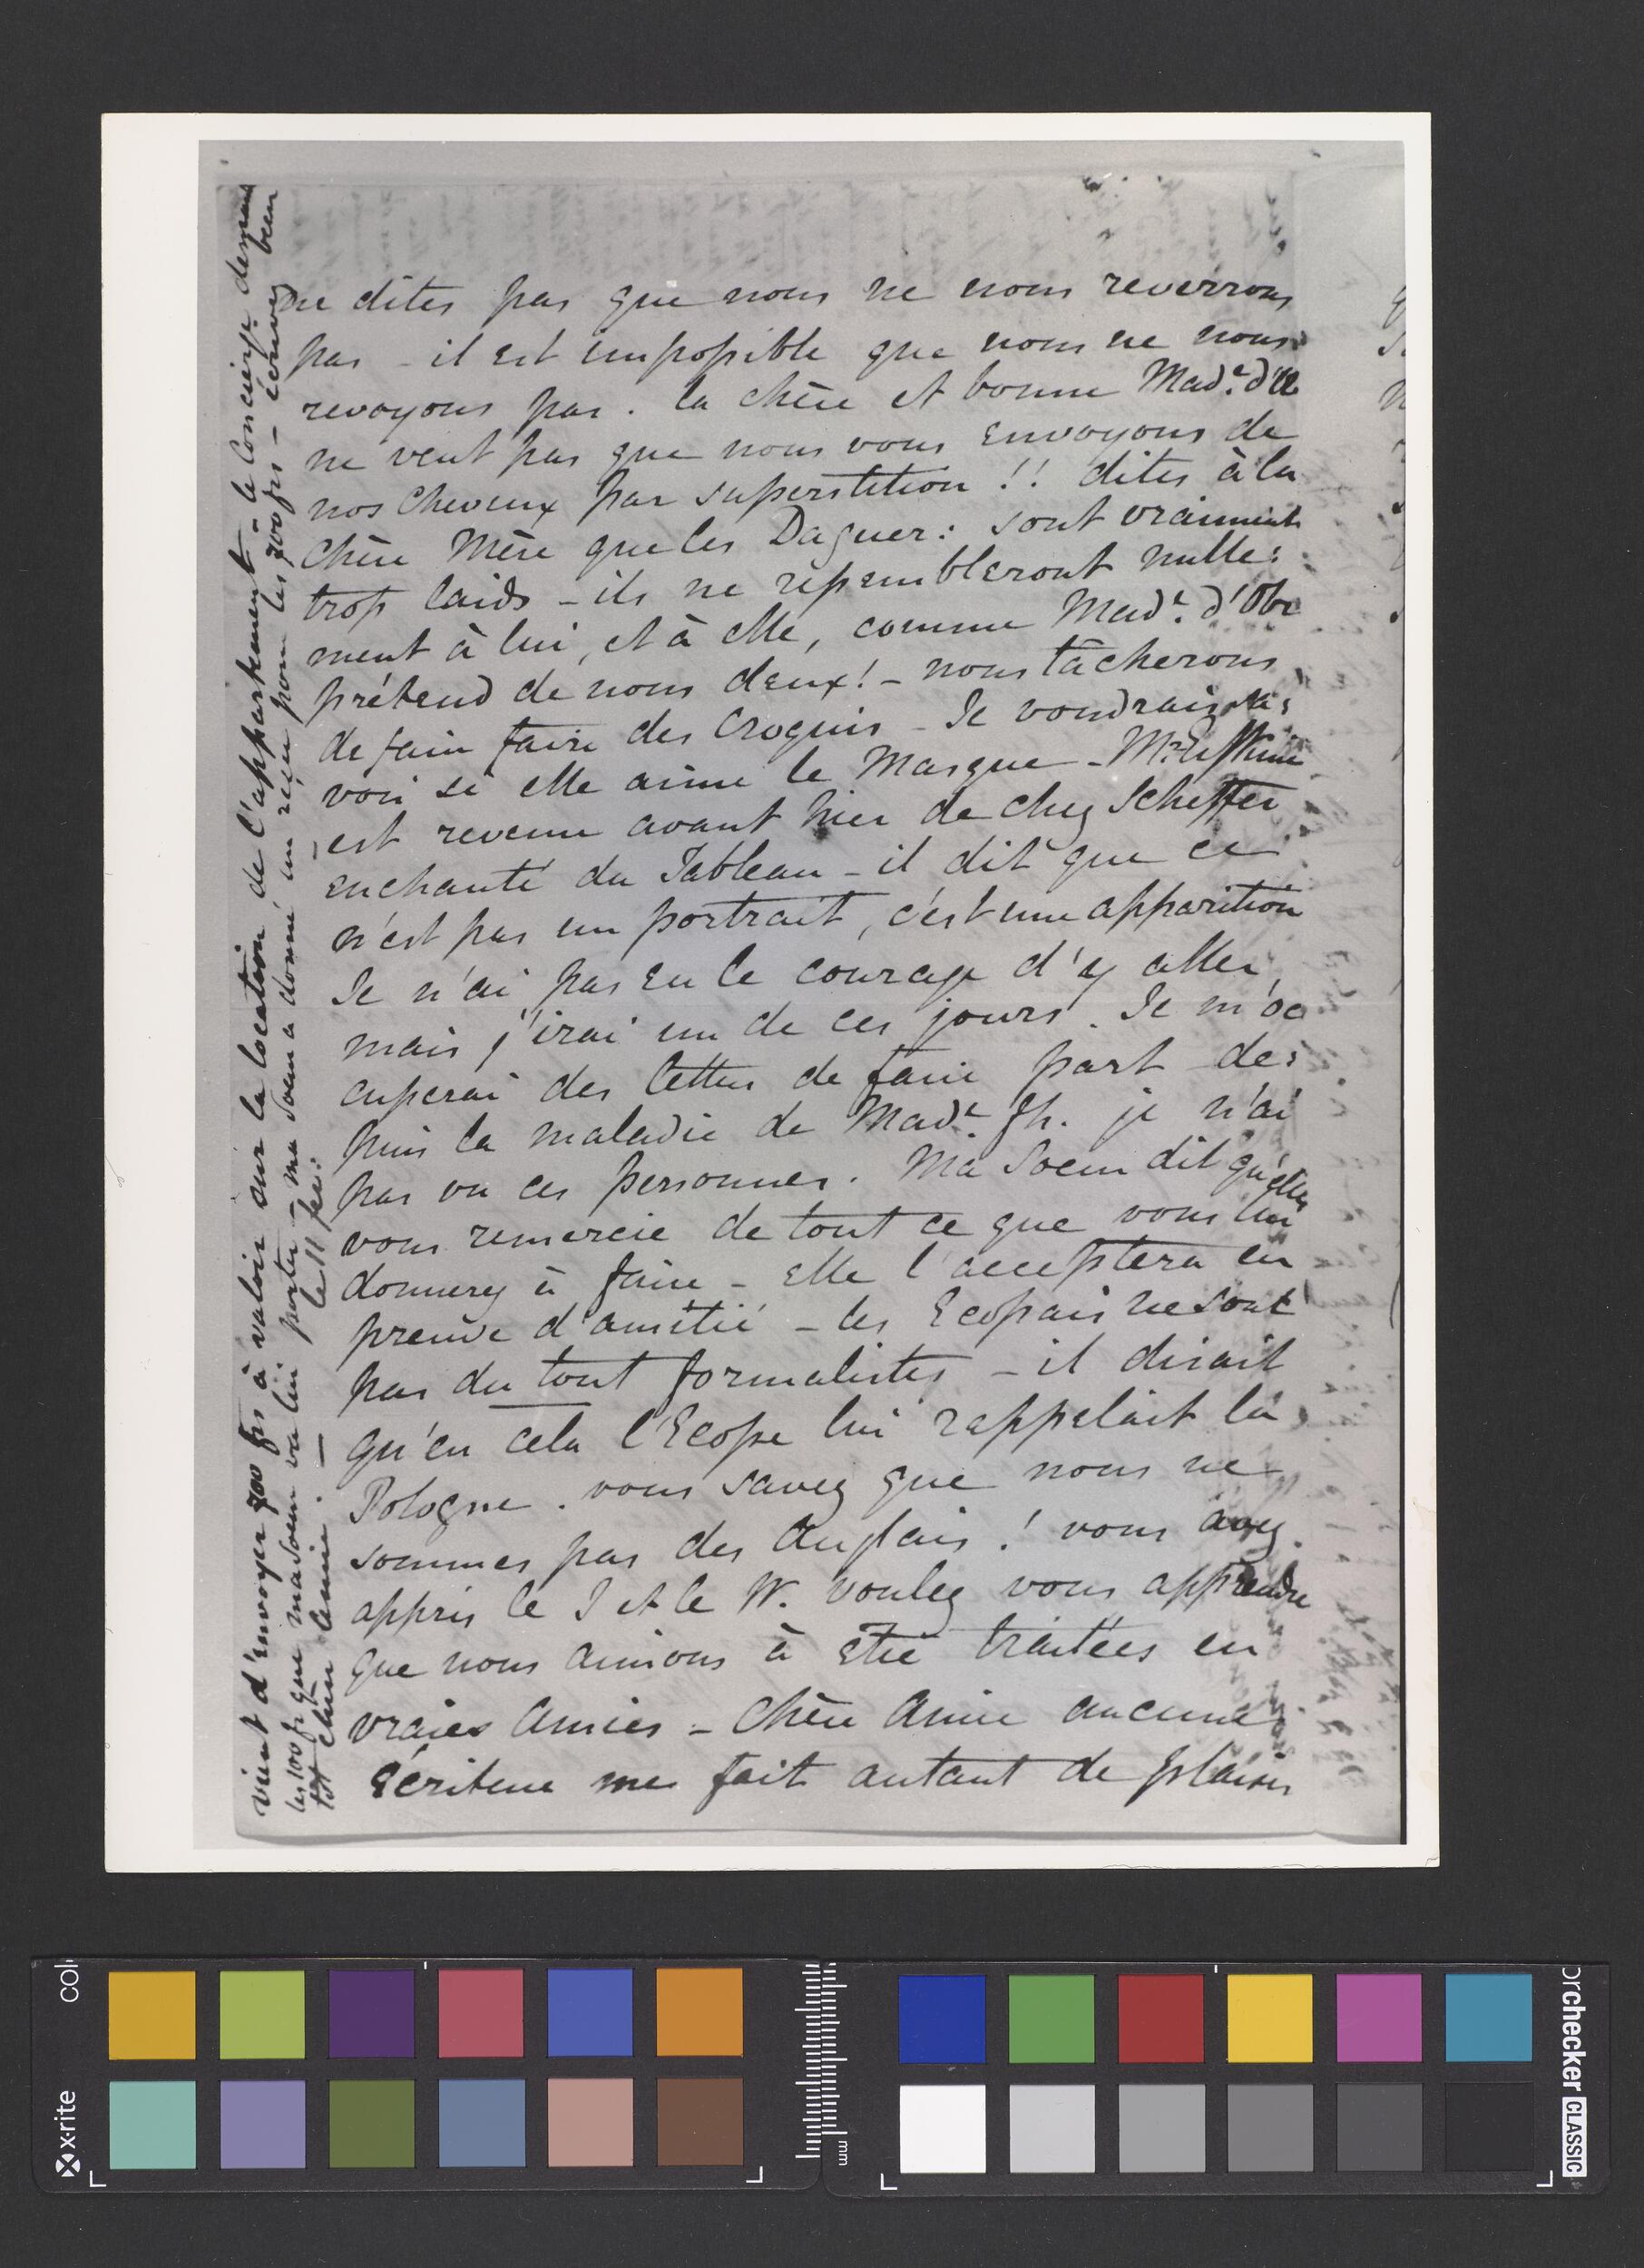 ne dites pas que nous ne nous reverrons
pas – il est impossible que nous ne nous
revoyons pas. la chère et bonne Mad.e d'O
ne veut pas que nous vous envoyons de
nos cheveux par superstition !! dites à la
chère Mère que les Daguer: sont vraiment
trop laids – ils ne ressembleront nulle:
ment à lui, et à elle, comme Mad.e d'Obr
prétend de nous deux! – nous tâcherons
de faire faire des croquis – Je voudrais sa:
voir si elle aime le Masque – Mr.
– est revenu avant hier de chez Scheffer
enchanté du Tableau – il dit que ce
n'est pas un portrait, c'est une apparition
Je n'ai pas eu le courage d'y aller,
mais j'irai un de ces jours. Je m'oc
cuperai des lettres de faire part de:
puis la maladie de Mad.e Jh. je n'ai
pas vu ces personnes. Ma Soeur dit qu'elle
vous remercie de tout ce que vous lui
donnerez à faire – elle l'acceptera en
preuve d'amitié – les Ecossais ne sont
pas du tout formalistes – il disait
qu'en cela l'Ecosse lui rappelait la
Pologne. vous savez que nous ne
sommes pas des Anglais! vous avez
appris le J et le W. voulez vous apprendre
que nous aimons à être traitées en
vraies Amies – Chère Amie aucune
écriture me fait autant de plaisir
vient d'envoyer 700 frs à valoir sur la location de l'appartement – le Concierge demande
les 100 fr que ma soeur va lui porter – ma soeur a donné un reçu pour les 700 frs – écrivez bien
tôt chère Amie. — le 11 fev: